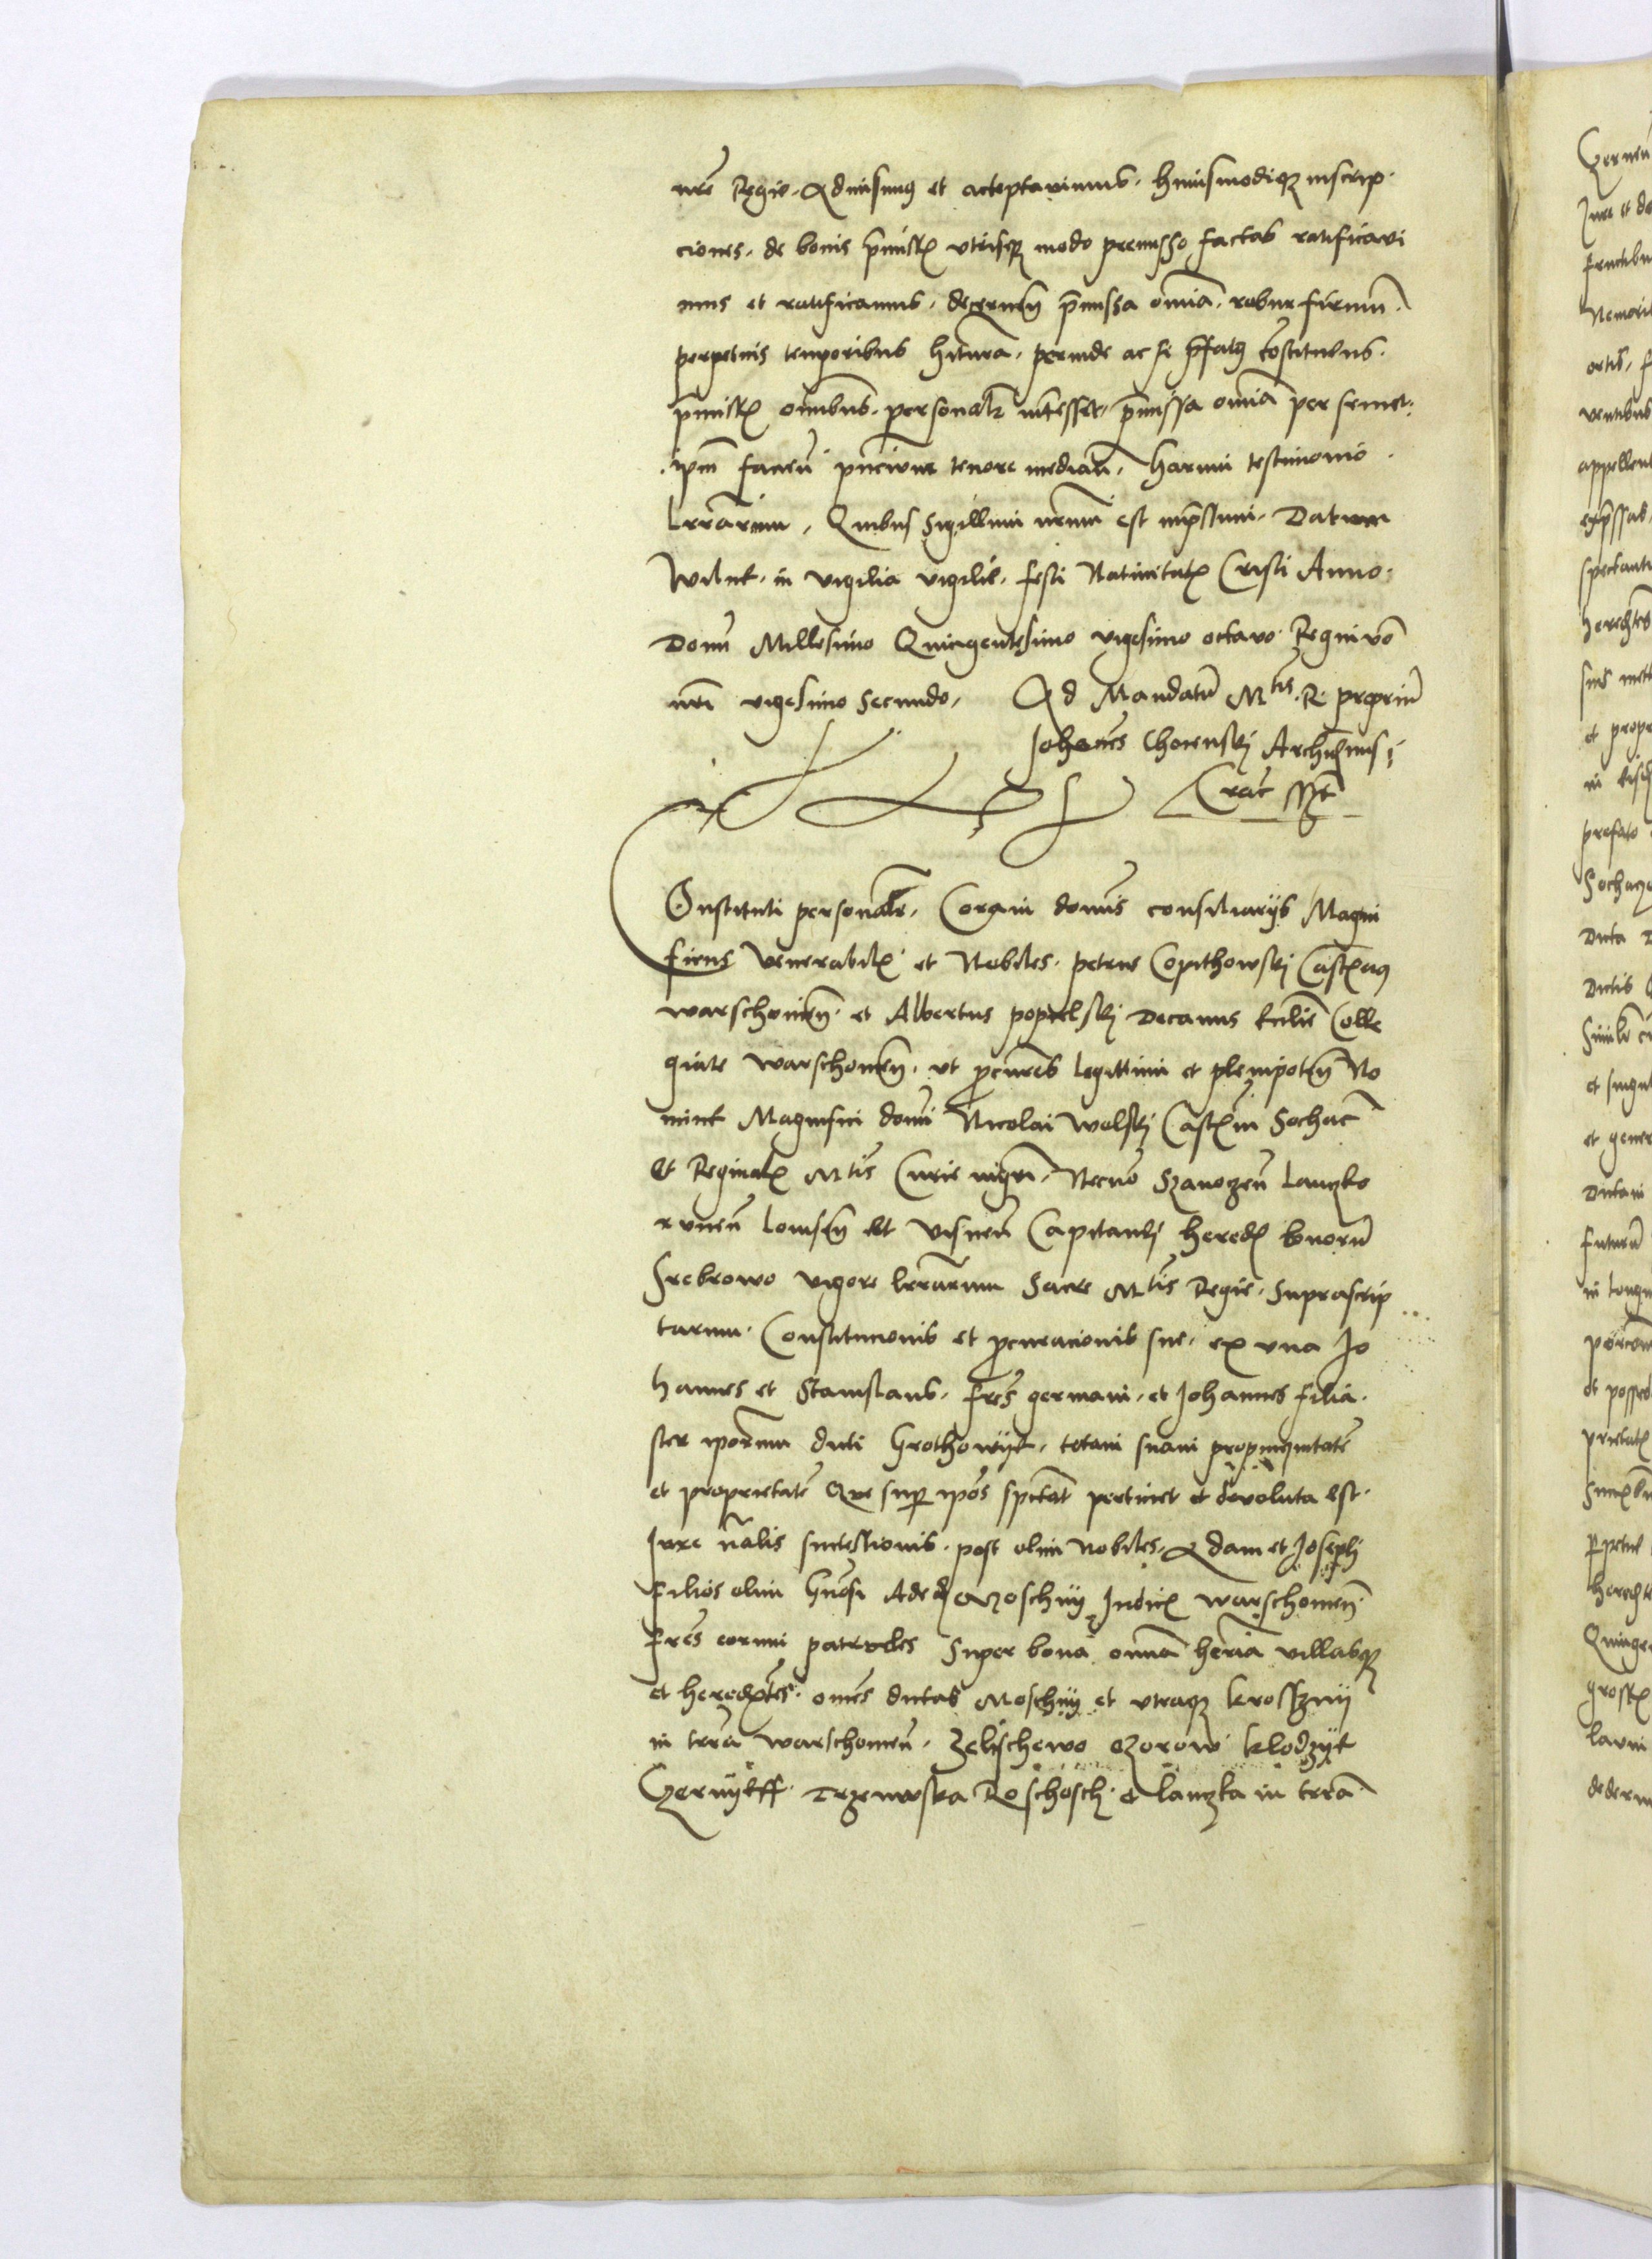 nrē Regie. Admisimus et acceptavimus. huiusmodiq; inscrip
ciones. de bonis p̄missis utrisq; modo premisso factas ratificavi
mus et ratificamus. decernen̄ p̄missa om̄ia. robur firmū.
perpetuis temporibus h̄itura. perinde ac si p̄fatus cōstituens.
p̄missis om̄ibus. personalr̄ int̄esset. p̄missa om̄ia per semet
ipm̄ faciēn pn̄cium tenore median̄. harum testimonio
Lrārum, Quibus Sigillum nr̄um est imp̄ssum. Datum
Wilne. in vigilia vigilie. festi Nativitatis Cristi Anno
Domī Millesimo Quingentesimo vigesimo octavo. Regni vō
nr̄i vigesimo Secundo, Ad Mandatū Mtis. R. propriū
Johannes Choienskj Archidnus
Crac̄
Onstituti personalr̄. Coram domīs consiliarijs Magni
ficus Venerabilis et Nobiles. petrus Copithowskj Castlnus
warschovien̄. et Albertus popielskj Decanus Eccl̄ie Colle
giate warschovien̄. ut p̄cur̄es Legittimi et plenipoten̄ No
mine Magnifici domī Nicolai Wolskj Castlni Sochac̄
Et Reginalis Mtis Curie mgr̄i. Necnō Szanoczen̄ Lanczko
runen̄ Lomsen̄ et Visnen̄ Capitanej heredis bonorū
Srebrowo vigore lrārum Sacre Mtis Regie. Suprascrip
tarum. Constitucionis et p̄curacionis sue. ex una Jo
hannes et Stanislaus. frēs germani. et Johannes filia
ster ipōrum dicti Grothowije. totam suam propinquitatē
et proprietatē Que sup̄ ipōs spectat pertinet et devoluta est.
Jure nālis successionis. post olim Nobiles. Adam et Joseph
filios olim Gn̄osi Ade de Moschny Judicis warschovien̄
frēs eorum patrueles Super bona om̄ia her̄ia villasq;
et heredtes. om̄es dictas Moschny et utraq; krosszny
in trr̄a warschovien̄. Zelischewo ozorow klodzije
Czernijeff. Trzeniwska Roschosch et lanczka in trr̄a